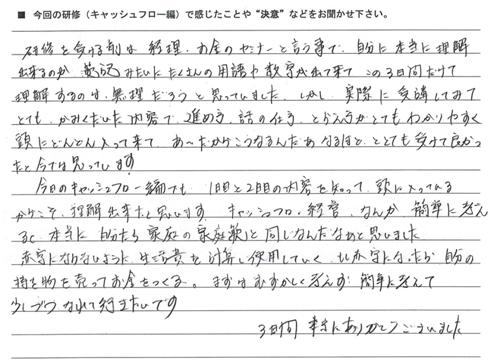 ■ 今回の研修（キャッシュフロー編）で感じたことや“決意”などをお聞かせ下さい。
研修を受ける前は 経理、お金のセミナーと言う事で、自分に本当に理解
出来るのか 簿記みたいにたくさんの用語や数字が出て来て この3日間だけで
理解するのは、無理だろうと思っていました。しかし、実際に受講してみて
とても、かみくだいた内容で、進め方、話の仕方、とらえ方がとてもわかりやすく
頭にどんどん入って来て、あ〜だからこうなるんだあ なるほど、ととても受けて良かっ
たと今では思っています！
今日のキャッシュフロー編でも、1日目と2日目の内容を知って、頭に入っている
からこそ、理解出来たと思います。キャッシュフロー経営、なんか 簡単に考え
ると 本当に 自分たち家庭の家庭観と同じなんだなあと思いました
赤字にならないように 生活費を計算し使用していく、もし赤字になったら自分の
持ち物を売ってお金をつくる。まずはむずかしく考えず 簡単に考えて
少しづつなれて行きたいです
3日間 本当にありがとうございました